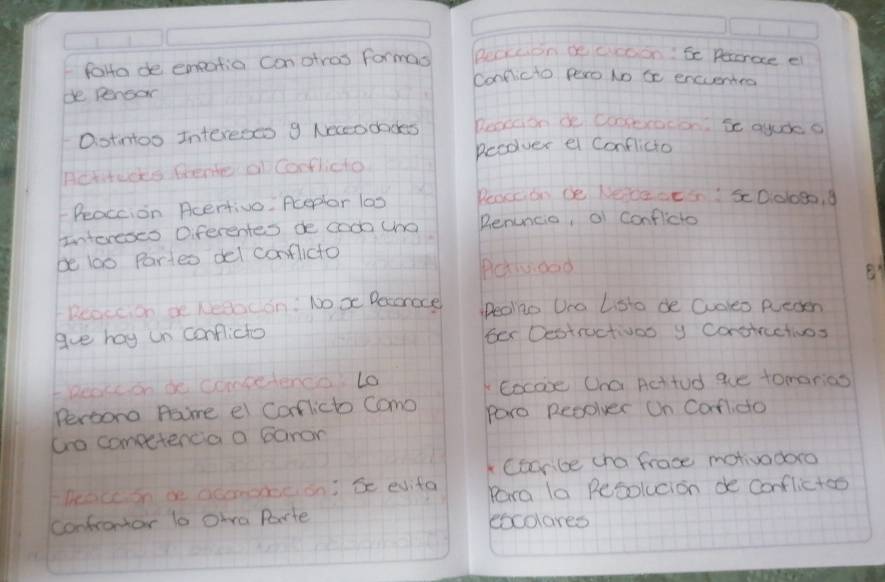 - falta de empatia con otras formas
de Pensar
- Distintos Intereses y Necesidades
Actitudes frente al Conflicto
- Reacción Acertiva: Aceptar las
Intereses Diferentes de cada una
de las Partes del conflicto
- Reacción de Negación: No se Reconoce
que hay un conflicto
- Reacción de competencia: Lo
Persona Asime el Conflicto Como
una competencia a Ganar
- Reacción de acomodación: Se evita
confrontar la Otra Parte
Reacción de evación: Se Reconoce el
Conflicto Pero No se encuentra
Reacción de Cooperación: Se ayuda a
Resolver el Conflicto
Reacción de Negociación: Se Dialoga, y
Renuncia, al conflicto
Actividad
Realiza Una Lista de Cuales Pueden
Ser Destructivos y Constructivos
Escribe Una Actitud que tomarias
Para Resolver Un Conflicto
Escribe una frase motivadora
Para la Resolución de Conflictos
escolares